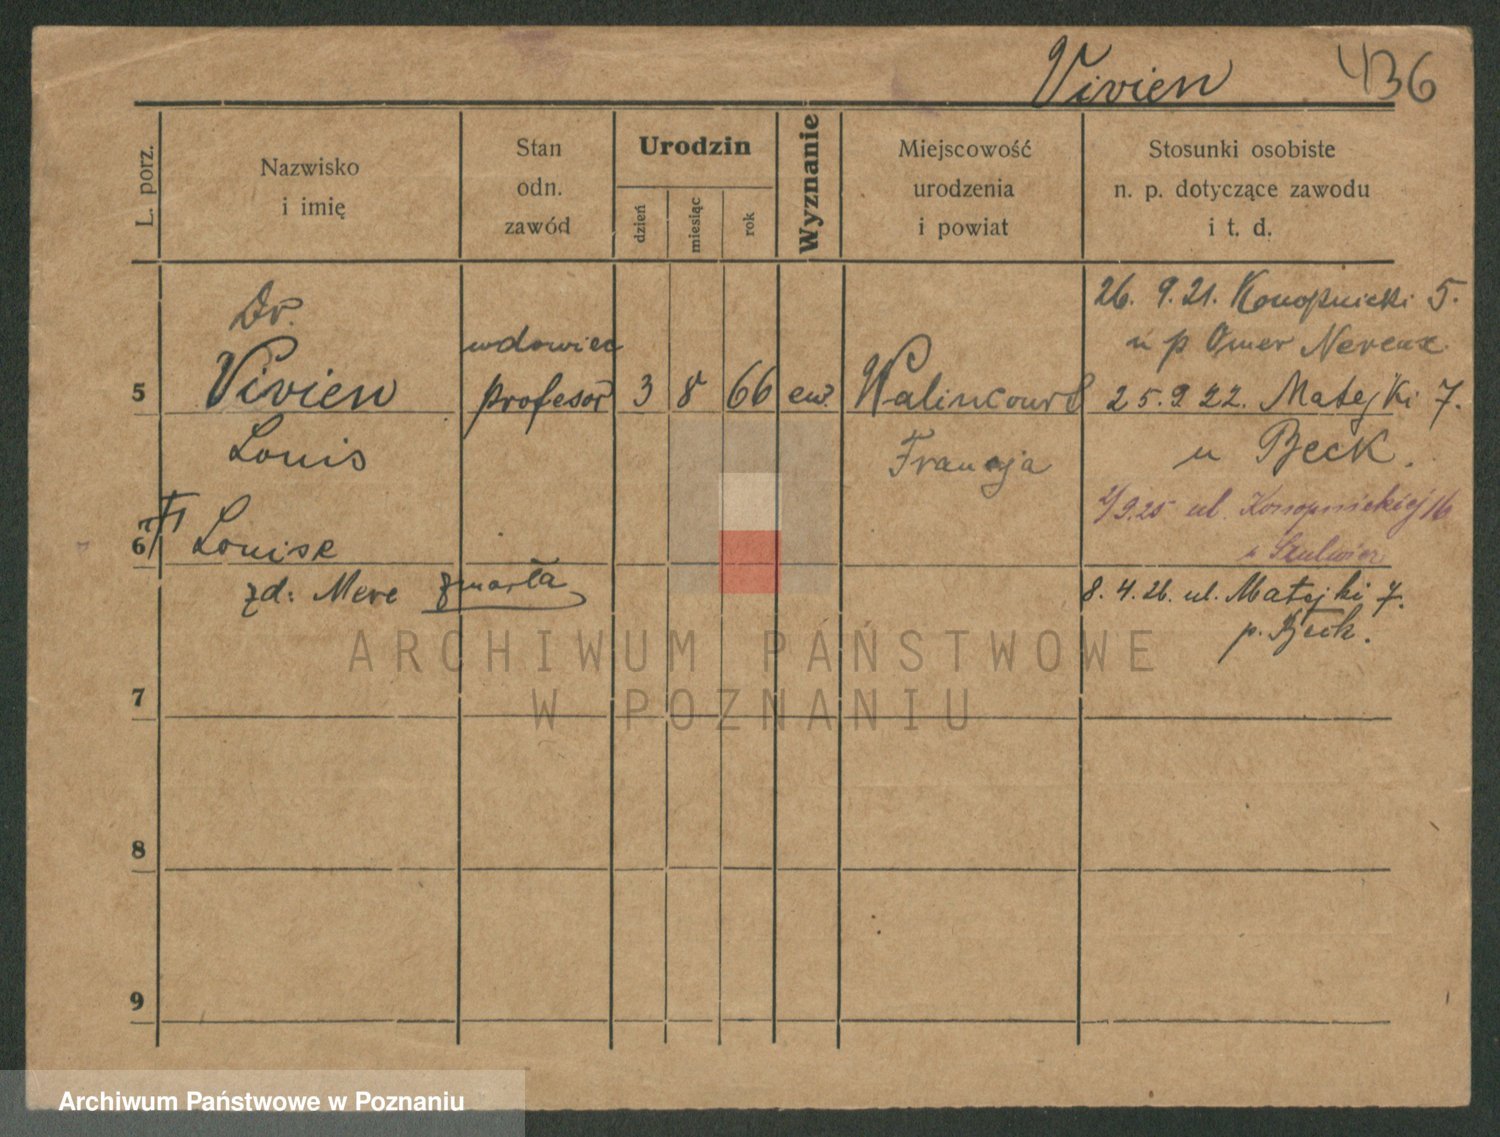 Vivien 436
L. porz.
Nazwisko
i imię
Stan
odn.
zawód
Urodzin
dzień
miesiąc
rok
Wyznanie
Miejscowość
urodzenia
i powiat
Stosunki osobiste
n. p. dotyczące zawodu
i t. d.
5
Dr.
Vivien
Louis
wdowiec
profesor
3 8 66 ew.
Walincourt
Francja
26. 9. 21. Konopnicki 5.
u p Omer
25. 9 22. Matejki 7.
u Beck.
2/9.25 ul. Konopnickiej 16
8. 4. 26. ul. Matejki 7.
p. Beck.
6
Louise
zd: Mere zmarła
7
8
9
ARCHIWUM PAŃSTWOWE
W POZNANIU
Archiwum Państwowe w Poznaniu